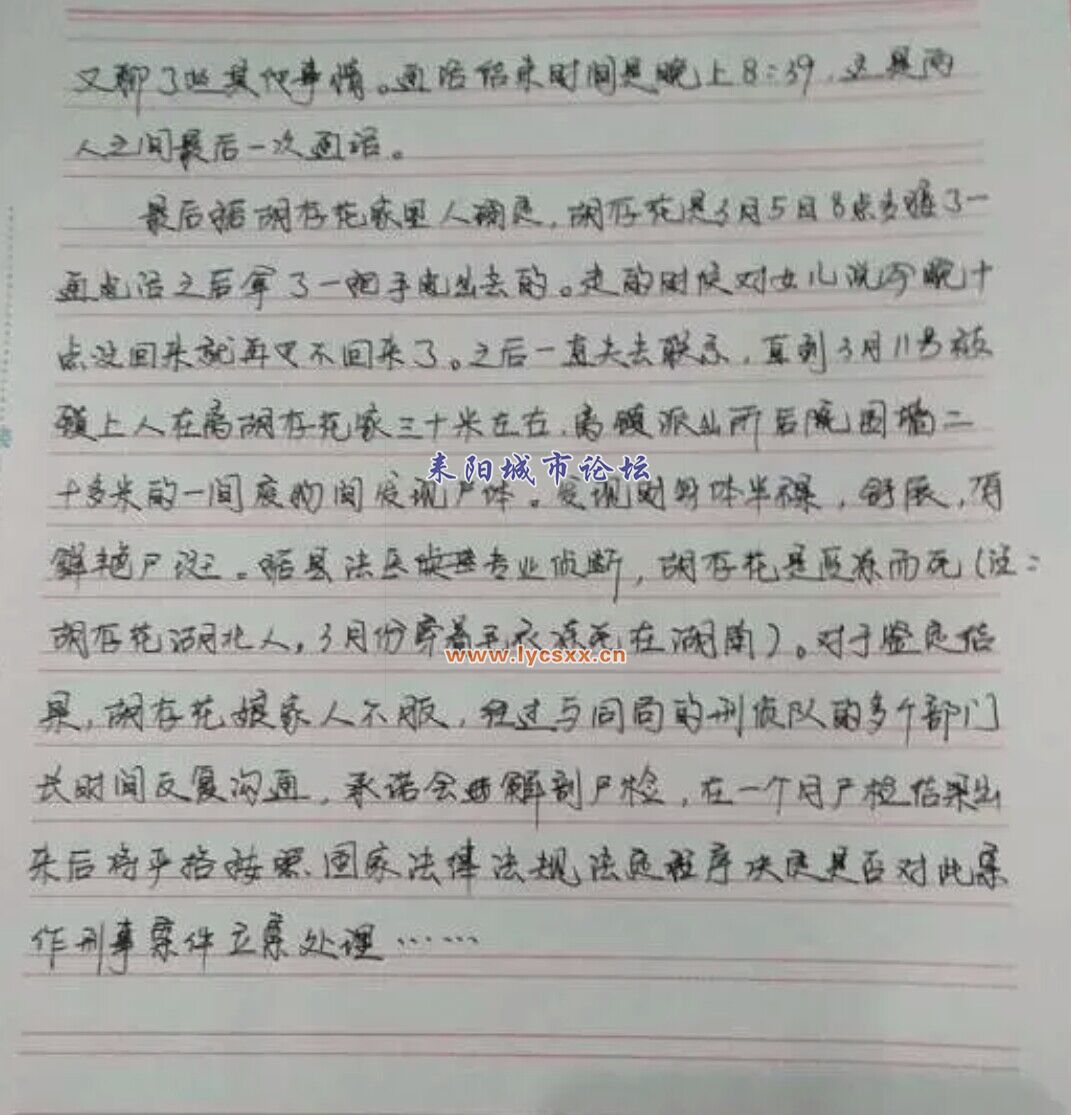 又聊了些其他事情。通话结束时间是晚上8:39,这是两
人之间最后一次通话。
最后据胡存花家里人阐述,胡存花是3月5日8点多接了一
通电话之后拿了一把手电出去的。走的时候对女儿说今晚十
点没回来就再也不回来了。之后一直失去联系,直到3月11号被
镇上人在离胡存花家三十米左右,离镇派出所后院围墙二
耒阳城市论坛
十多米的一间废物间发现尸体。发现时身体半裸,舒展,有
鲜艳尸斑。据县法医专业侦断,胡存花是受冻而死(注:
胡存花湖北人,3月份穿着毛衣冻死在湖南)。对于鉴定结
www.lycsxx.cn
果,胡存花娘家人不服,经过与同局的刑侦队的多个部门
长时间反复沟通,承诺会解剖尸检,在一个月尸检结果出
来后将严格按照国家法律法规法定程序决定是否对此案
作刑事案件立案处理……